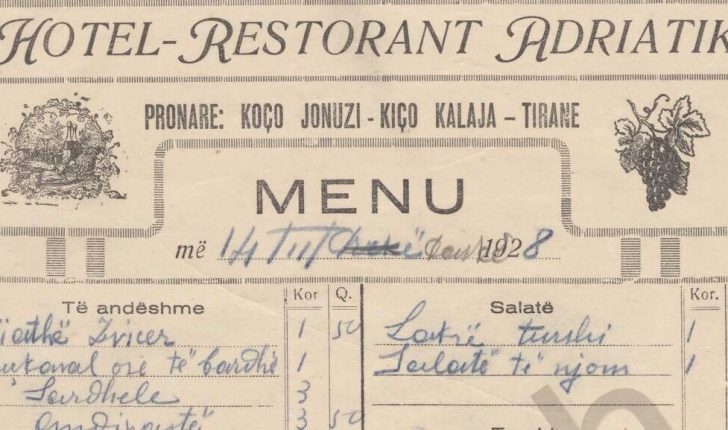 HOTEL-RESTORANT ADRIATIK
PRONARE: KOÇO JONUZI - KIÇO KALAJA – TIRANE
MENU
më 14 1928
Të andëshme Kor Q.
Zvicer 1 50
ose të bardhë 1
Sardhele 3
3 50
Salatë Kor.
Lakrë turshi 1
Salatë të njom 1